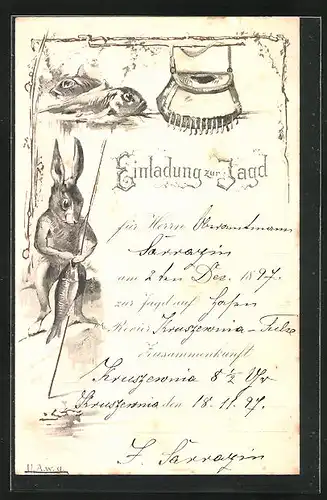 Einladung zur Jagd
für Herrn Oberamtmann
Sarrazin
am 2ten Dez. 1897.
zur Jagd auf Hasen
Revier Kruszewnia -
Zusammenkunft
Kruszewnia 8 ½ Uhr
Kruszewnia den 18.11.97.
F. Sarrazin
U.A.w.g.